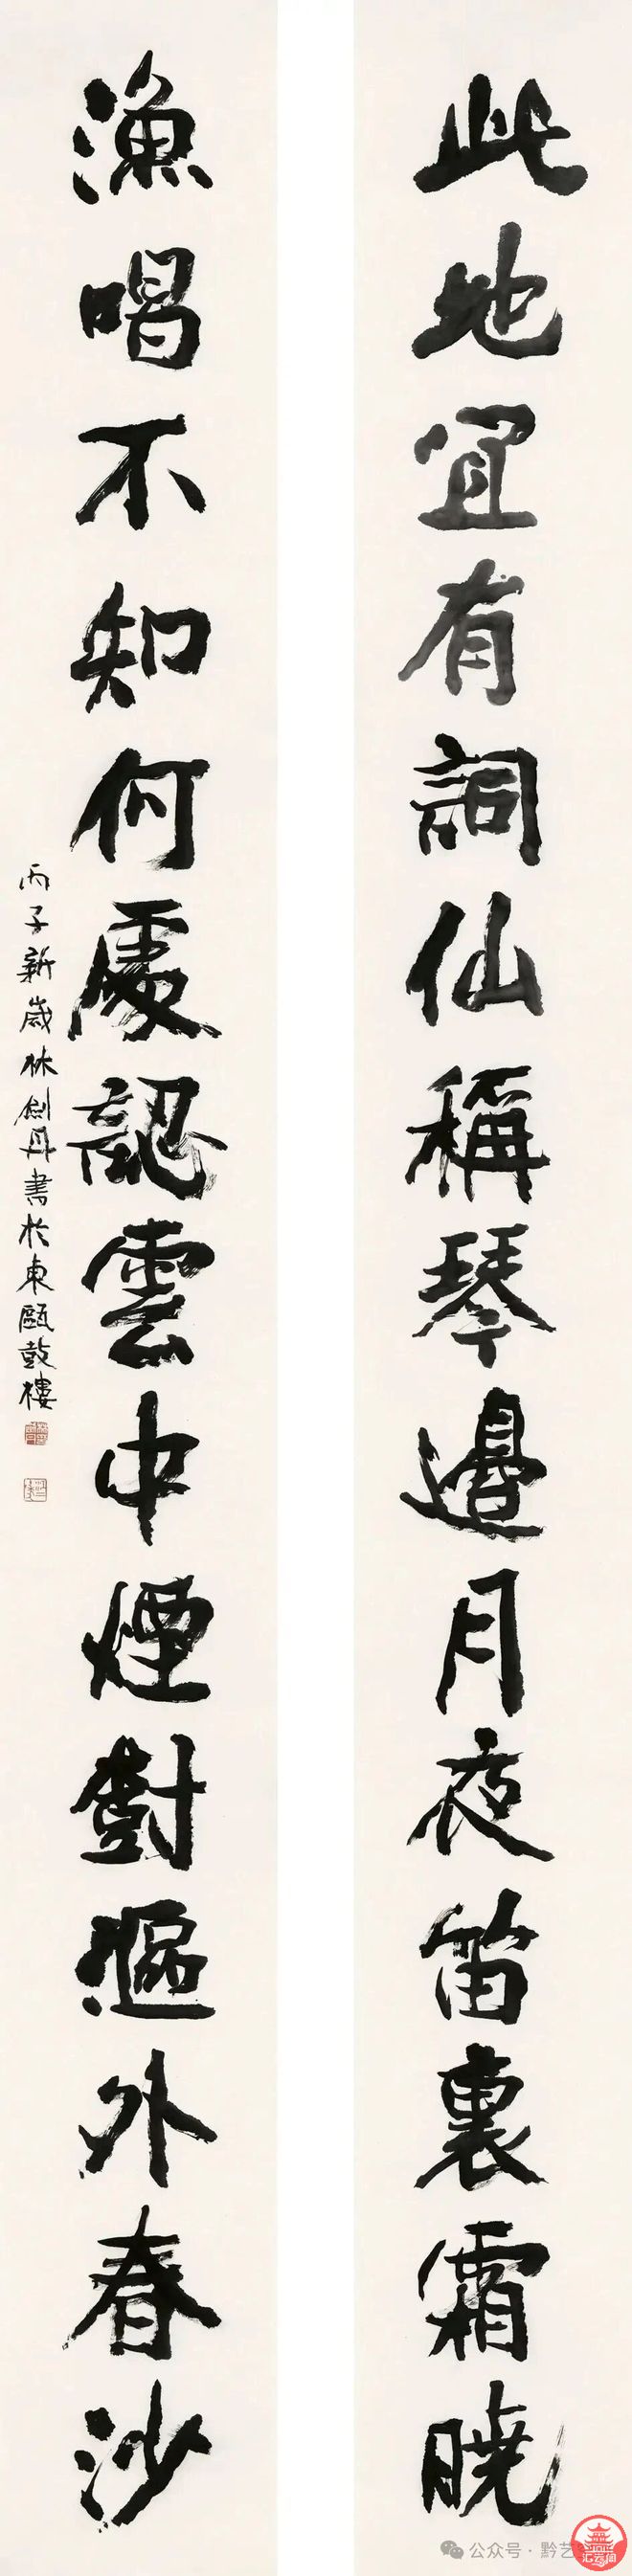 此地宜有詞仙稱琴邊月夜笛裏霜曉
漁唱不知何處認雲中煙對漚外春沙
丙子新歲林劍丹書於東甌鼓樓
公众号·黔艺
汇云阁